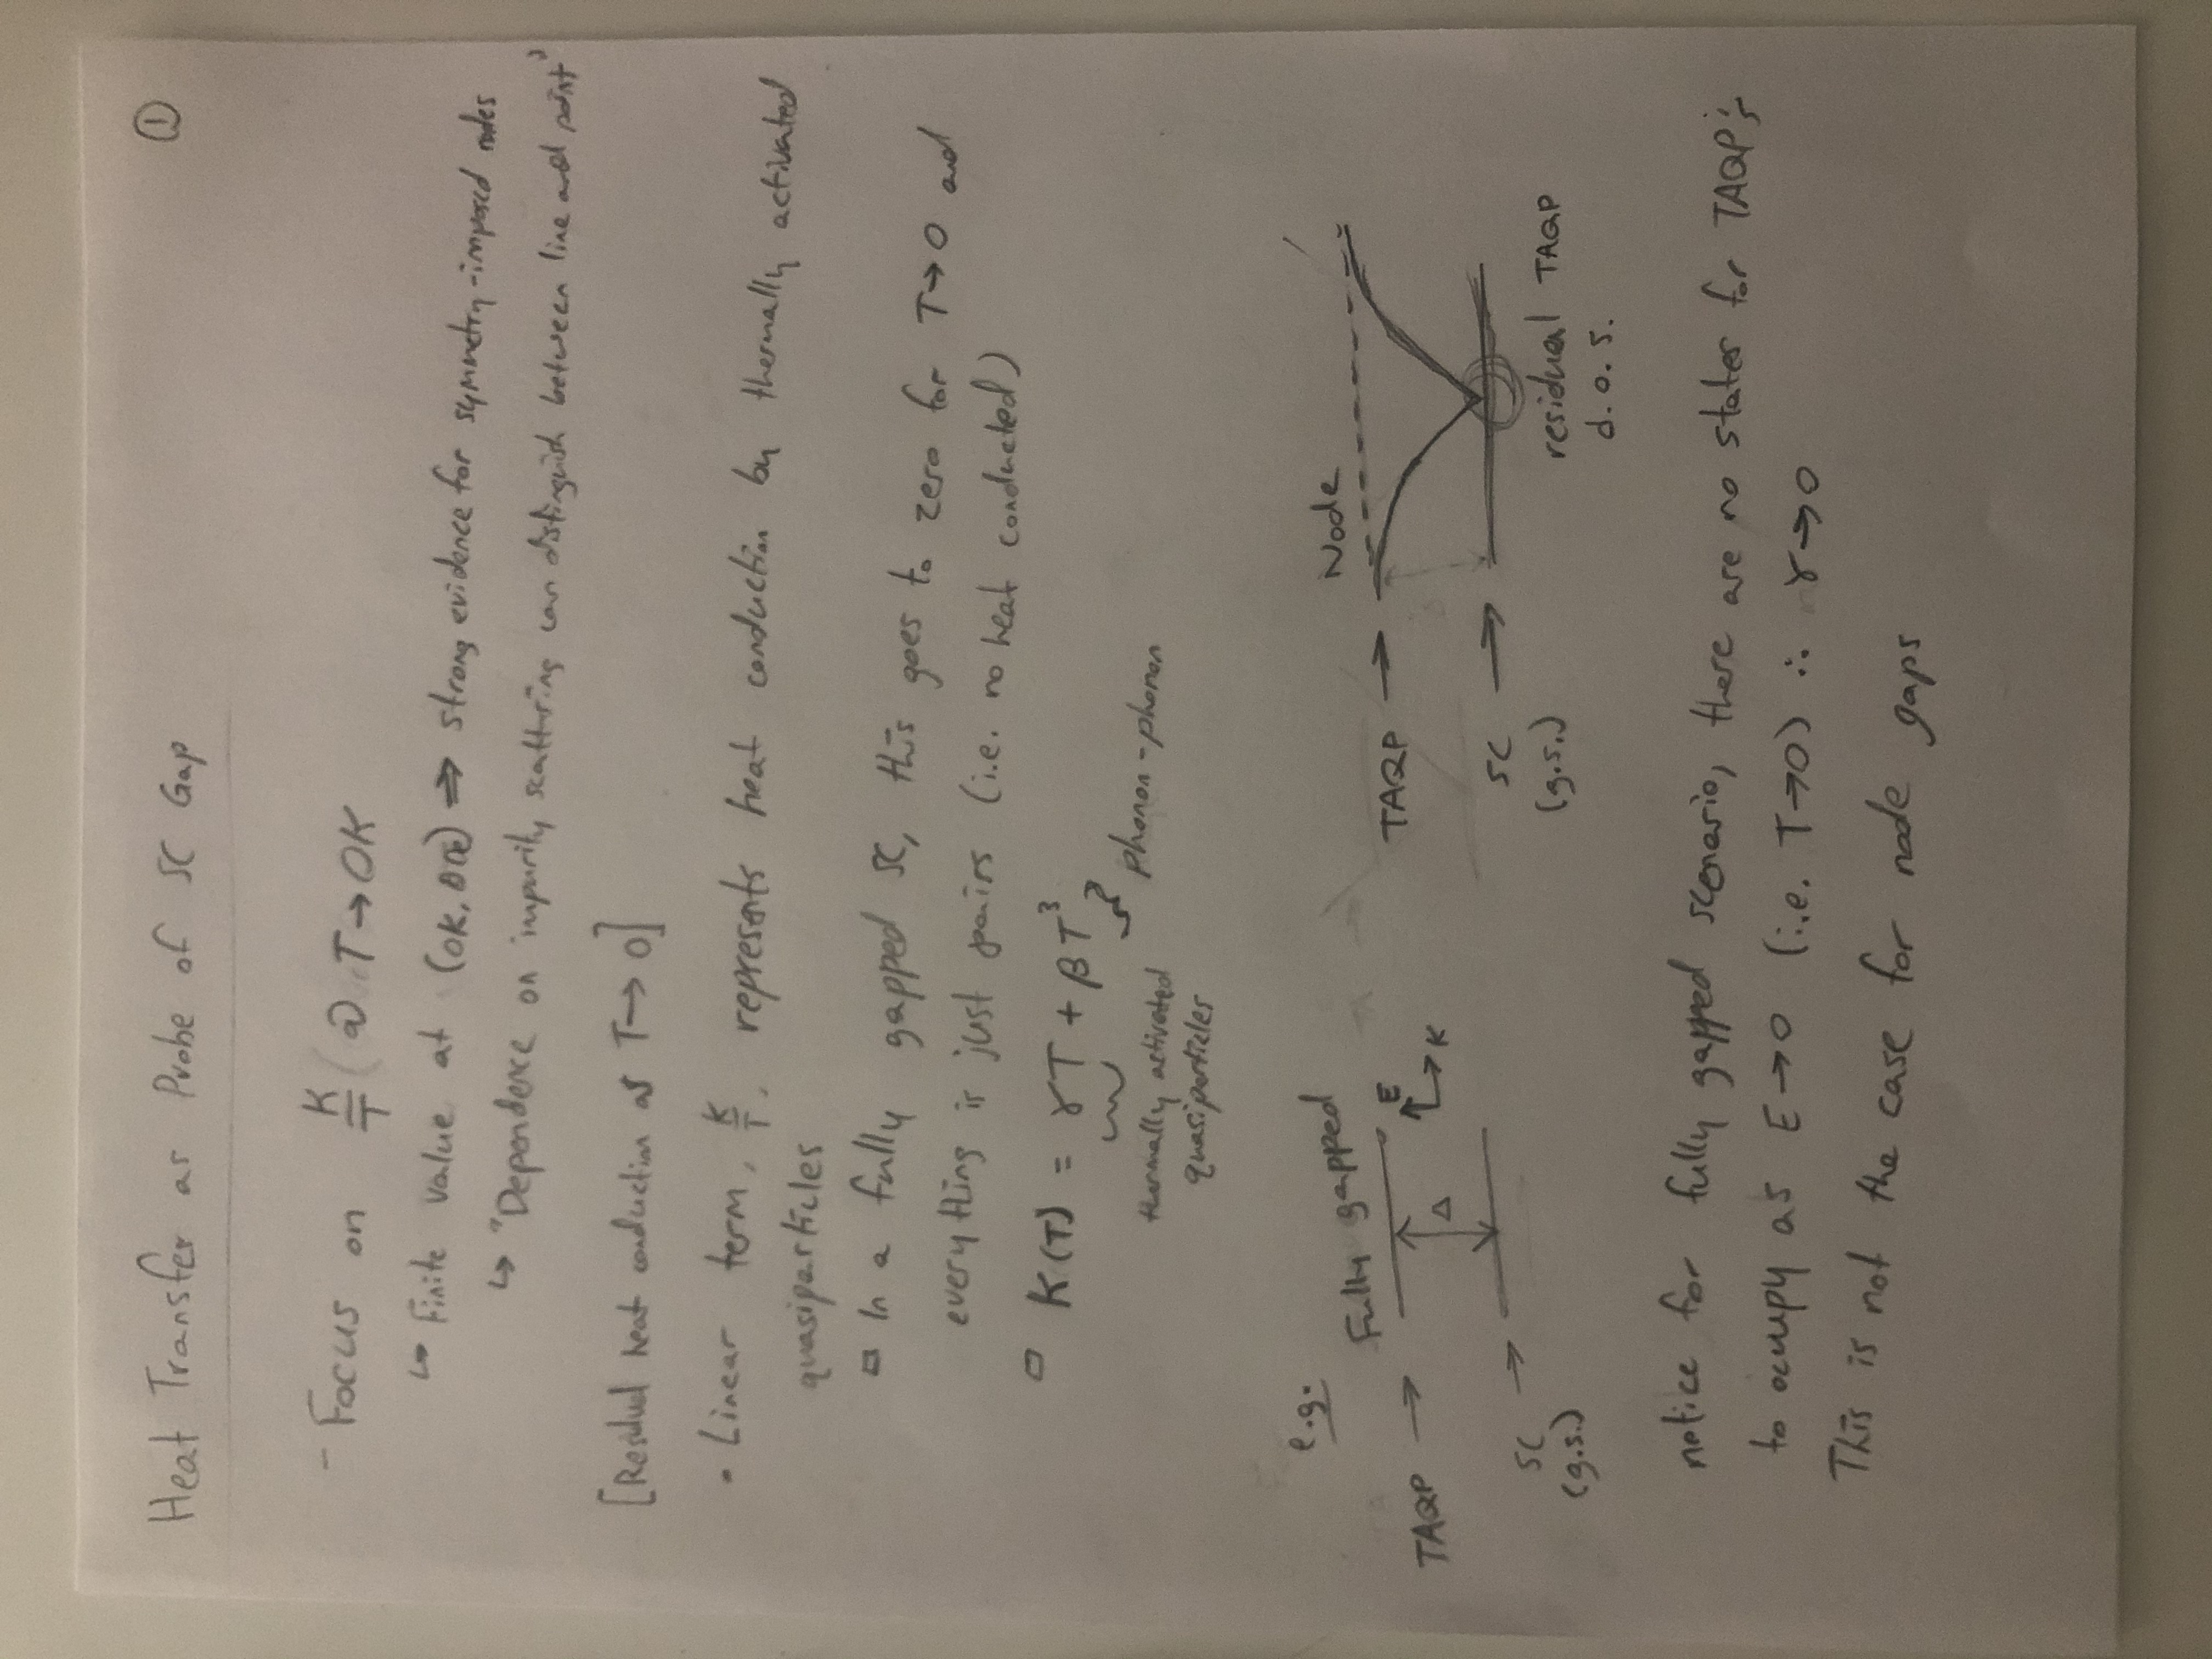 ①
Heat Transfer as Probe of SC Gap
- Focus on K/T @ T→0K
↳ Finite value at (0K, 0Oe) ⇒ strong evidence for symmetry-imposed nodes
↳ "Dependence on impurity scattering can distinguish between line and point"
[Residual heat conduction as T→0]
• Linear term, K/T, represents heat conduction by thermally activated
quasiparticles
▫ In a fully gapped SC, this goes to zero for T→0 and
everything is just pairs (i.e. no heat conducted)
▫ K(T) = γT + βT³
} phonon-phonon
thermally activated
quasiparticles
e.g.
Fully gapped
Node
TAQP →
E
Δ
K
TAQP →
SC →
(g.s.)
SC →
(g.s.)
residual TAQP
d.o.s.
notice for fully gapped scenario, there are no states for TAQP's
to occupy as E→0 (i.e. T→0) ∴ γ→0
This is not the case for node gaps